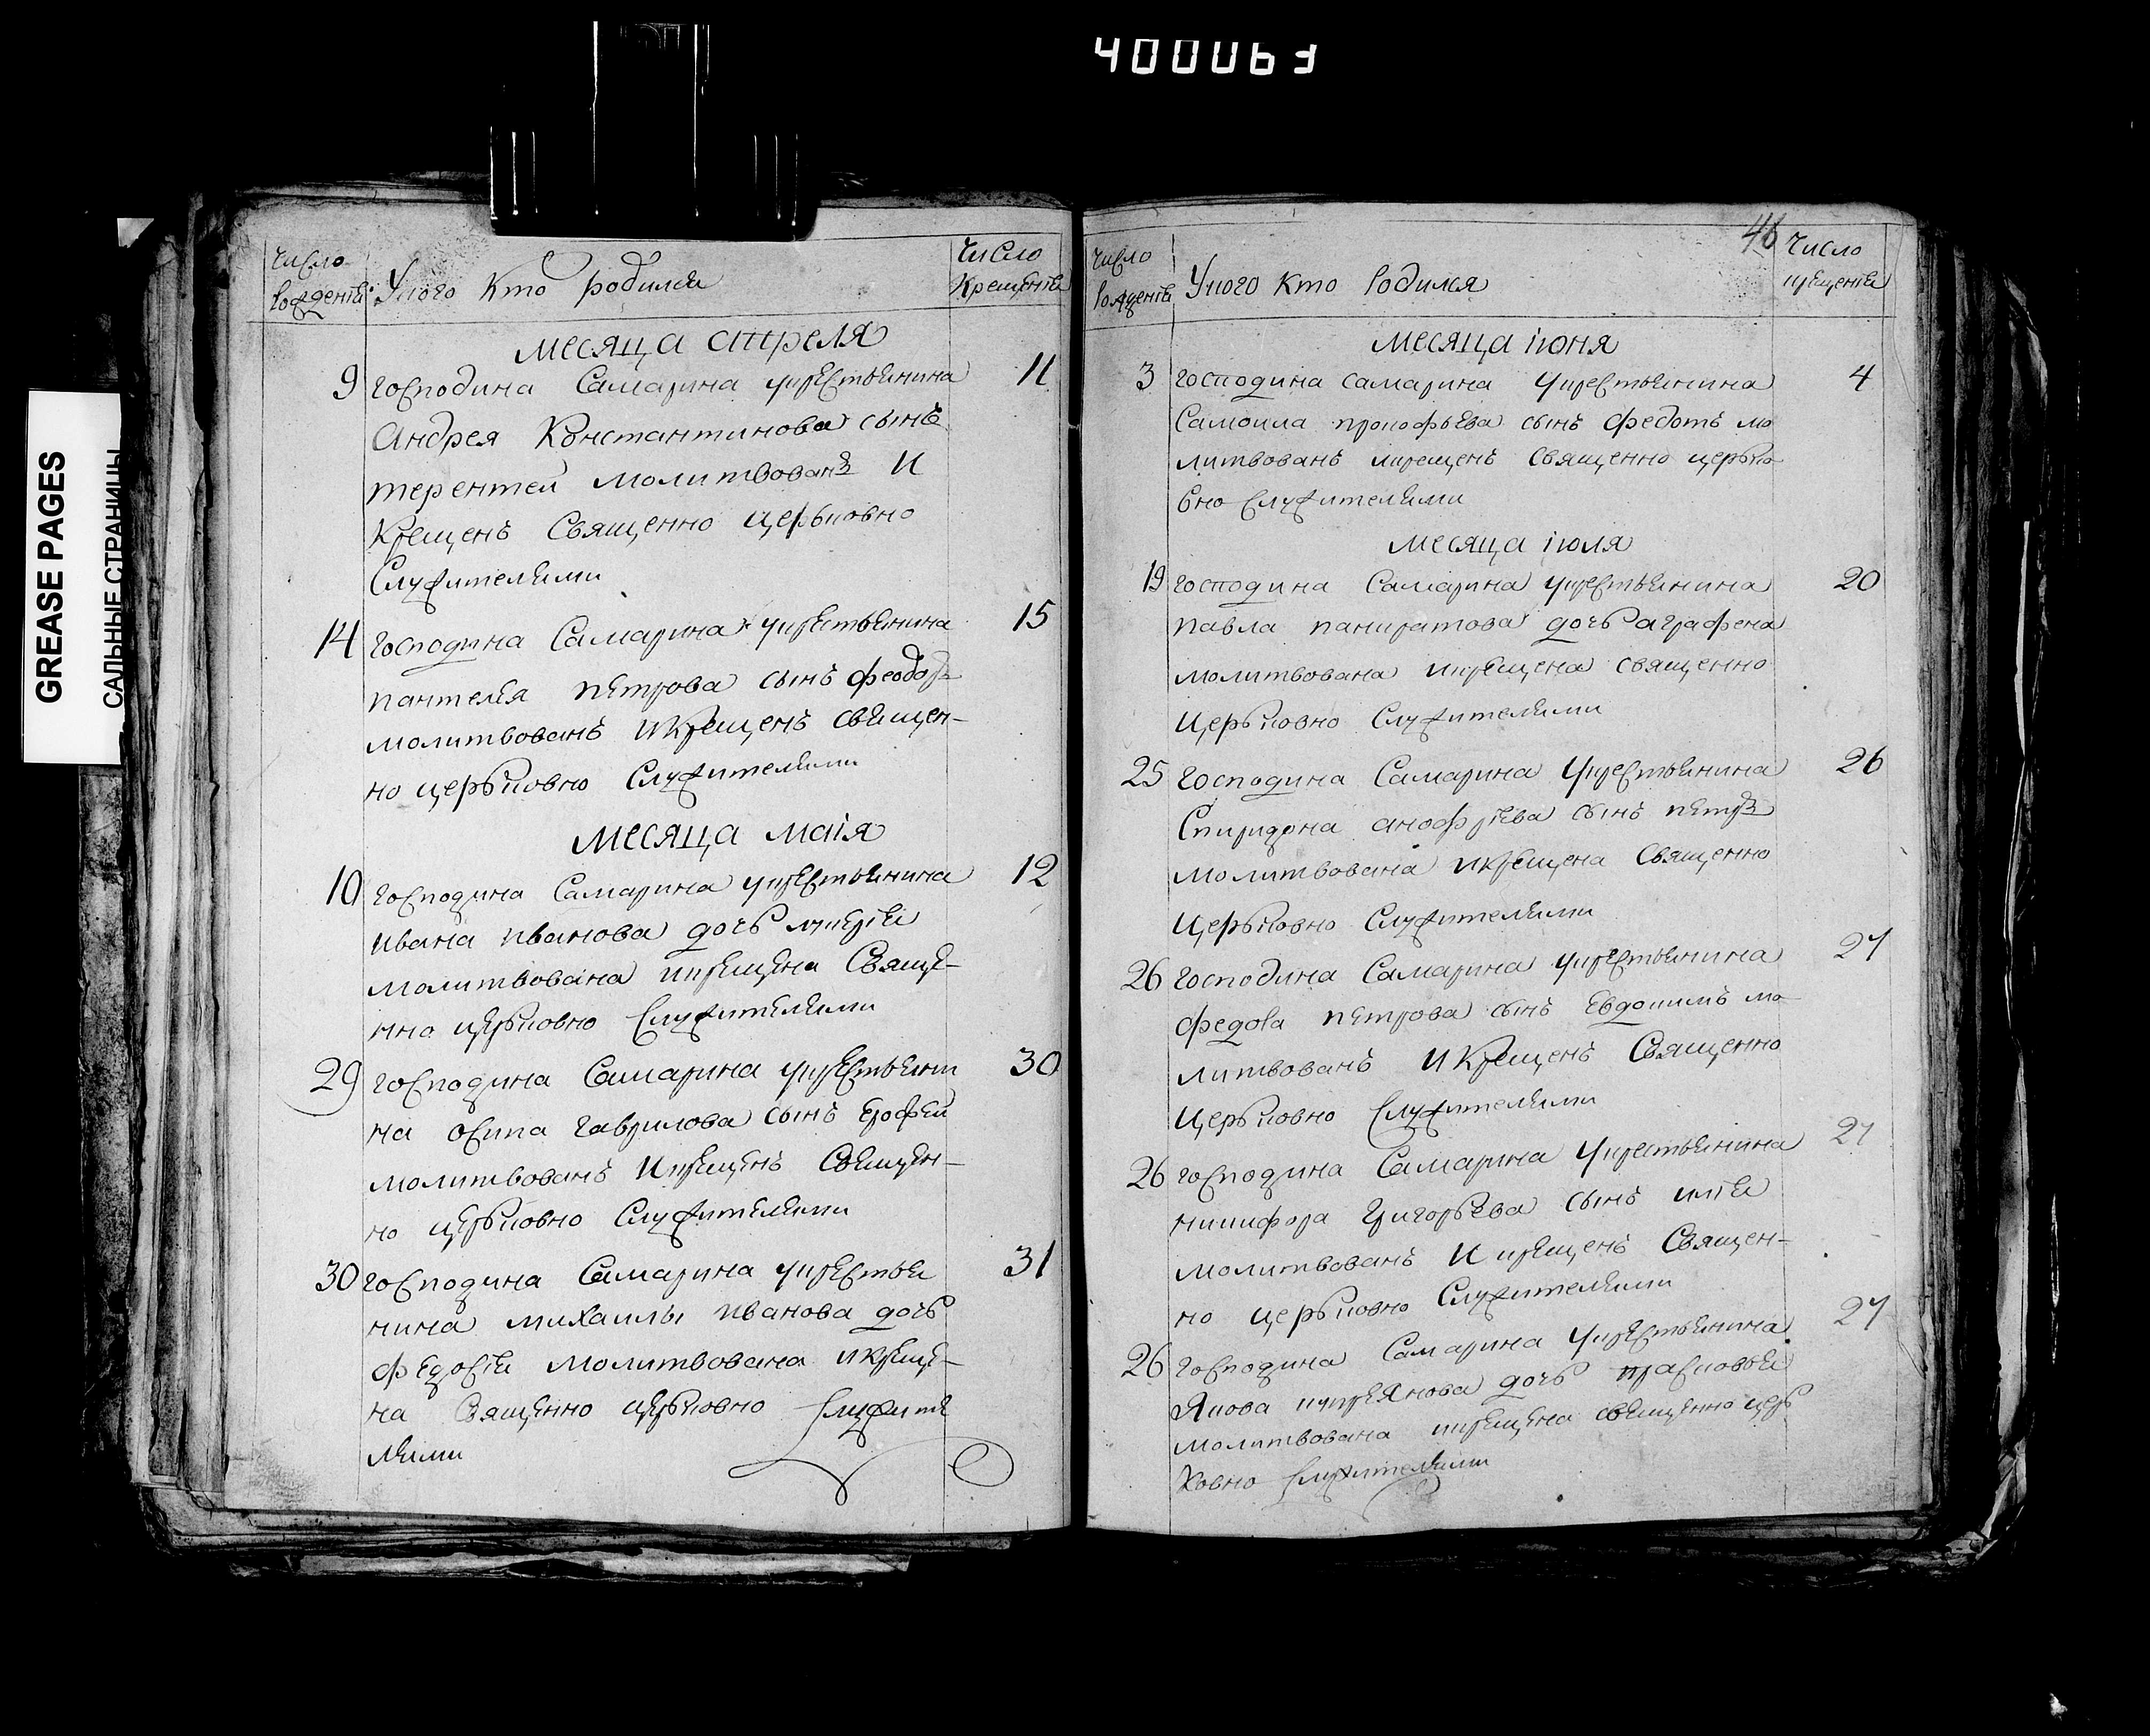 400063
GREASE PAGES
САЛЬНЫЕ СТРАНИЦЫ
Число рожденія
У кого кто родился
Число Крещенія
месяца апреля
9 господина Самарина укрестьянина 11
Андрея Константинова сынъ
терентей молитвованъ и
Крещенъ Священно церьковно
Служителями
14 господина Самарина укрестьянина 15
пантелея петрова сынъ феодоръ
молитвованъ и Крещенъ священ-
но церьковно Служителями
месяца маія
10 господина Самарина укрестьянина 12
ивана иванова дочь
молитвована и крещена Свяще-
нно церьковно Служителями
29 господина Самарина укрестьяни 30
на осипа гаврилова сынъ ерофеи
молитвованъ и крещенъ Священ-
но церьковно Служителями
30 господина Самарина укрестья 31
нина михаилы иванова дочь
федосія молитвована и креще-
на Священно церьковно Служите
лями
46
Число рожденія
У кого кто родился
Число крещенія
месяца іюня
3 господина самарина укрестьянина 4
Самоила прокофьева сынъ федотъ мо
литвованъ икрещенъ Священно церько
вно Служителями
месяца іюля
19 господина Самарина укрестьянина 20
павла панкратова дочь аграфена
молитвована и крещена священно
Церьковно Служителями
25 господина Самарина укрестьянина 26
Спиридона анофріева сынъ петръ
молитвована и крещена Священно
Церьковно Служителями
26 господина Самарина укрестьянина 27
федора петрова сынъ Евдокимъ мо
литвованъ и Крещенъ Священно
Церьковно Служителями
26 господина Самарина укрестьянина 27
никифора григорьева сынъ иліа
молитвованъ и крещенъ Священ-
но церьковно Служителями
26 господина Самарина укрестьянина 27
Якова купреянова дочь прасковья
молитвована и крещена священно церь
Ковно Служителями